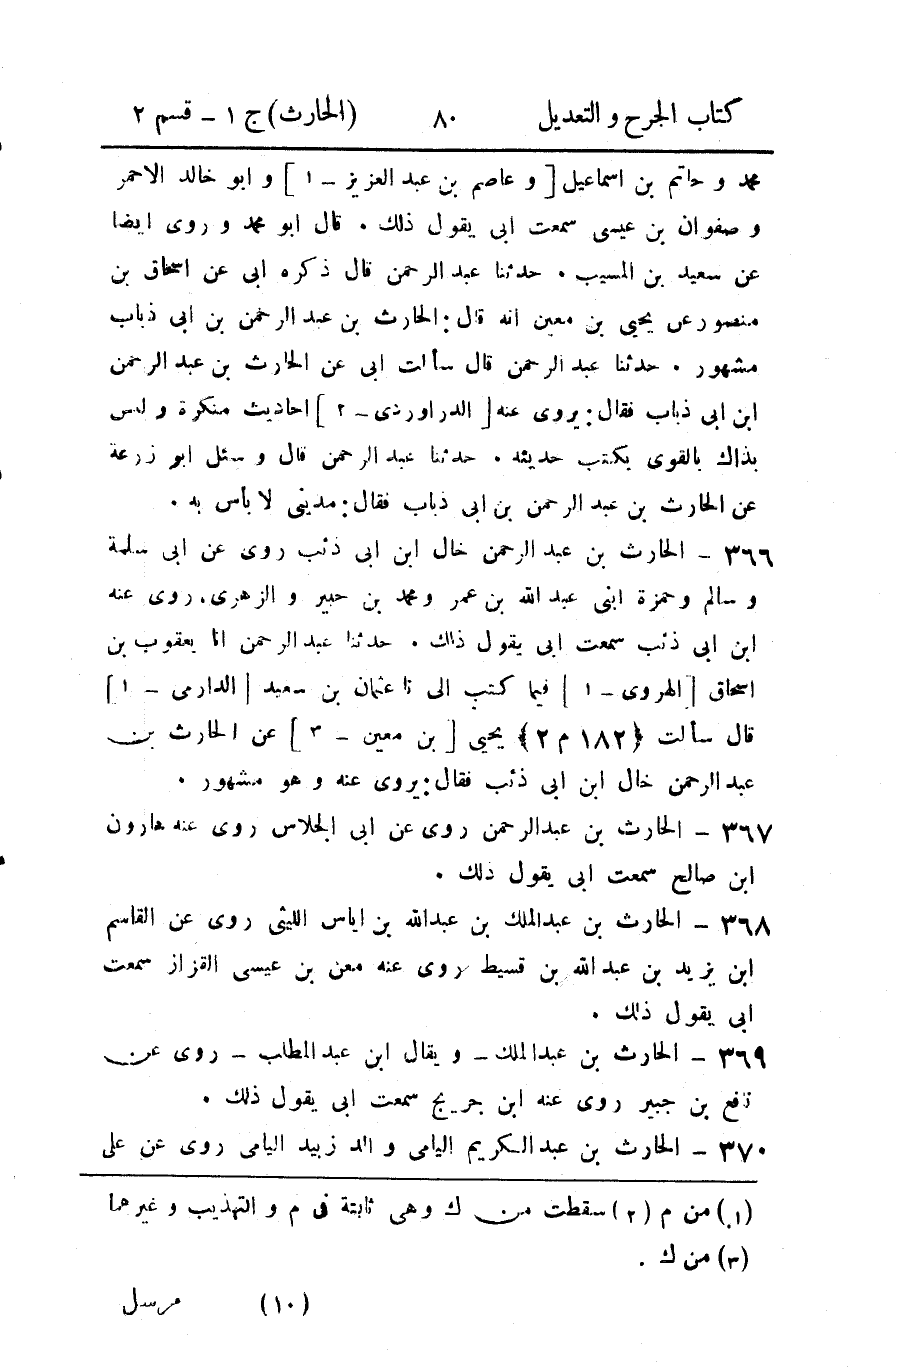 كتاب الجرح و التعديل ٨٠ (الحارث) ج ١ - قسم ٢
محمد و حاتم بن اسماعيل [ و عاصم بن عبد العزيز - ١ ] و ابو خالد الاحمر
و صفوان بن عيسى سمعت ابى يقول ذلك ٠ قال ابو محمد و روى ايضا
عن سعيد بن المسيب ٠ حدثنا عبد الرحمن قال ذكره ابى عن اسحاق بن
منصور عن يحيى بن معين انه قال: الحارث بن عبد الرحمن بن ابى ذباب
مشهور ٠ حدثنا عبد الرحمن قال سألت ابى عن الحارث بن عبد الرحمن
ابن ابى ذباب فقال: يروى عنه [ الدراوردى - ٢ ] احاديث منكرة و ليس
بذاك بالقوى يكتب حديثه ٠ حدثنا عبد الرحمن قال و سئل ابو زرعة
عن الحارث بن عبد الرحمن بن ابى ذباب فقال: مدينى لا بأس به ٠
٣٦٦ - الحارث بن عبد الرحمن خال ابن ابى ذئب روى عن ابى سلمة
و سالم و حمزة ابنى عبد الله بن عمر و محمد بن جبير و الزهرى، روى عنه
ابن ابى ذئب سمعت ابى يقول ذلك ٠ حدثنا عبد الرحمن انا يعقوب بن
اسحاق [ الهروى - ١ ] فيما كتب الى نا عثمان بن سعيد [ الدارمى - ١ ]
قال سألت ﴿١٨٢ م ٢﴾ يحيى [ بن معين - ٣ ] عن الحارث بن
عبد الرحمن خال ابن ابى ذئب فقال: يروى عنه و هو مشهور ٠
٣٦٧ - الحارث بن عبدالرحمن روى عن ابى الجلاس روى عنه هارون
ابن صالح سمعت ابى يقول ذلك ٠
٣٦٨ - الحارث بن عبدالملك بن عبدالله بن اياس الليثى روى عن القاسم
ابن يزيد بن عبد الله بن قسيط روى عنه معن بن عيسى القزاز سمعت
ابى يقول ذلك ٠
٣٦٩ - الحارث بن عبدالملك - و يقال ابن عبدالمطلب - روى عن
نافع بن جبير روى عنه ابن جريج سمعت ابى يقول ذلك ٠
٣٧٠ - الحارث بن عبد الكريم اليامى و الد زبيد اليامى روى عن على
(١) من م (٢) سقطت من ك وهى ثابتة فى م و التهذيب و غيرهما
(٣) من ك .
(١٠) مرسل